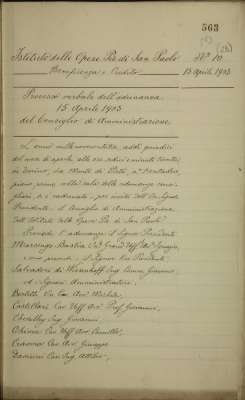 563
Istituto delle Opere Pie di San Paolo
N.° 10
Beneficenza e Credito
15 Aprile 1903
Processo verbale dell'adunanza
15 Aprile 1903
del Consiglio di Amministrazione
L'anno millenovecentotre, addì quindici
del mese di aprile, alle ore sedici e minuti trenta
in Torino, via Monte di Pietà, n.° trentadue,
piano primo nella sala delle adunanze consi-
gliari si è radunato, per invito dell'Ill. Signor
Presidente, il Consiglio di Amministrazione
dell'Istituto delle Opere Pie di San Paolo.
Presiede l'adunanza il Signor Presidente
Marsengo Bastia Grand'Uff. Avv. Ignazio,
sono presenti il Signor Vice Presidente
Salvadori di Wiesenhoff Ing. Comm. Giacomo,
ed i Signori Amministratori,
Bertetti Cav. Avv. Michele,
Castellari Cav. Uff. Avv. Prof. Giovanni,
Chevalley Ing. Giovanni,
Cav. Uff. Avv. Camillo,
Cravero Cav. Avv. Giuseppe,
Davicini Cav. Ing. Attilio,